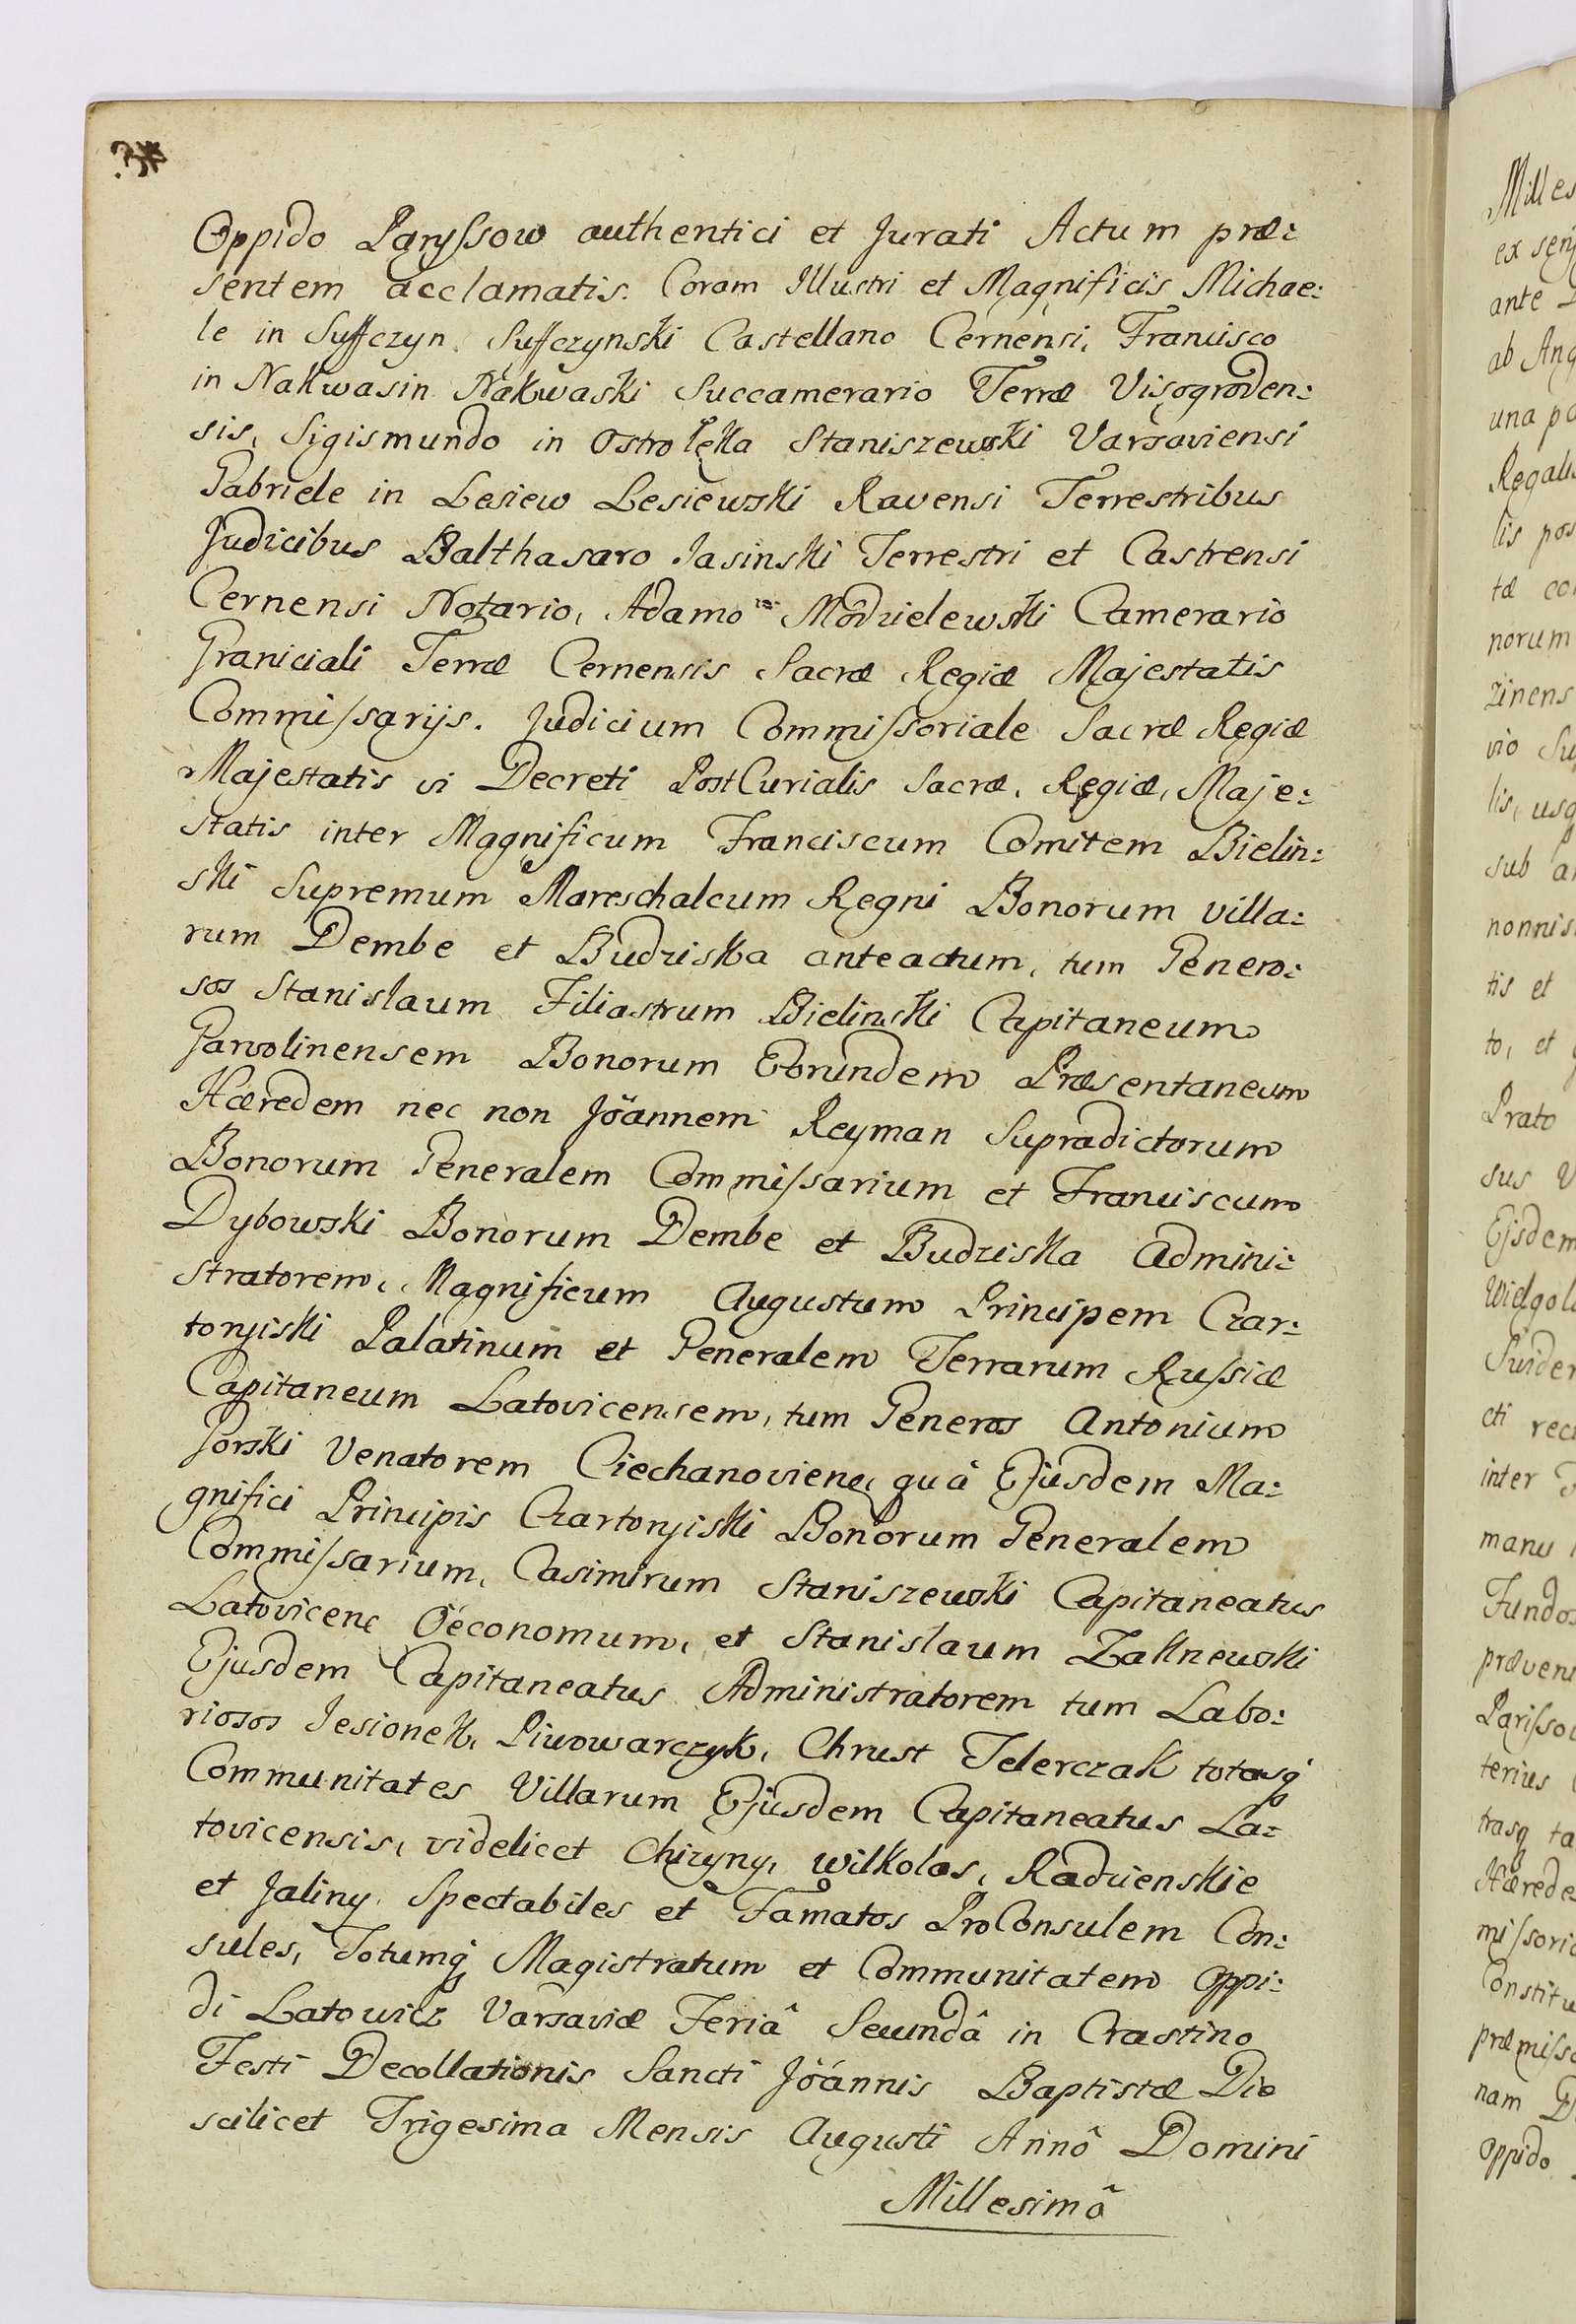 Oppido Paryssow authentici et Jurati Actum præ:
sentem acclamatis. Coram Illustri et Magnificis Michae:
le in Suffczyn Suffczynski Castellano Cernensi, Francisco
in Nakwasin Nakwaski Succamerario Terræ Visogroden:
sis, Sigismundo in Ostrolęka Staniszewski Varsaviensi
Gabriele in Lesiew Lesiewski Ravensi Terrestribus
Judicibus Balthasaro Jasinski Terrestri et Castrensi
Cernensi Notario, Adamo Modzielewski Camerario
Graniciali Terræ Cernensis Sacræ Regiæ Majestatis
Commissarijs. Judicium Commissoriale Sacræ Regiæ
Majestatis vi Decreti PostCurialis Sacræ, Regiæ, Maje:
statis inter Magnificum Franciscum Comitem Bielin:
ski Supremum Mareschalcum Regni Bonorum villa:
rum Dembe et Budziska anteactum, tum Genero:
sos Stanislaum Filiastrum Bielinski Capitaneum
Garvolinensem Bonorum Eorundem Præsentaneum
Hæredem nec non Jöannem Reyman Supradictorum
Bonorum Generalem Commissarium et Franciscum
Dybowski Bonorum Dembe et Budziska Admini:
stratorem, Magnificum Augustum Principem Czar:
toryiski Palatinum et Generalem Terrarum Russiæ
Capitaneum Latovicensem, tum Generos Antonium
Gorski Venatorem Ciechanoviene, quâ Ejusdem Ma:
gnifici Principis Czartoryiski Bonorum Generalem
Commissarium, Casimirum Staniszewski Capitaneatus
Latovicene Oeconomum, et Stanislaum Zaknewski
Ejusdem Capitaneatus Administratorem tum Labo:
riosos Jesionek, Piwowarczyk, Chrust Telerczak totasq
Communitates Villarum Ejusdem Capitaneatus La:
tovicensis, videlicet Chizyny, Wilkolas, Radzienskie
et Jaliny, Spectabiles et Famatos ProConsulem Con:
sules, Totumq Magistratum et Communitatem Oppi:
di Latowicz Varsaviæ Feriâ Secundâ in Crastino
Festi Decollationis Sancti Jöánnis Baptistæ Die
scilicet Trigesima Mensis Augusti Annô Domini
Millesimô